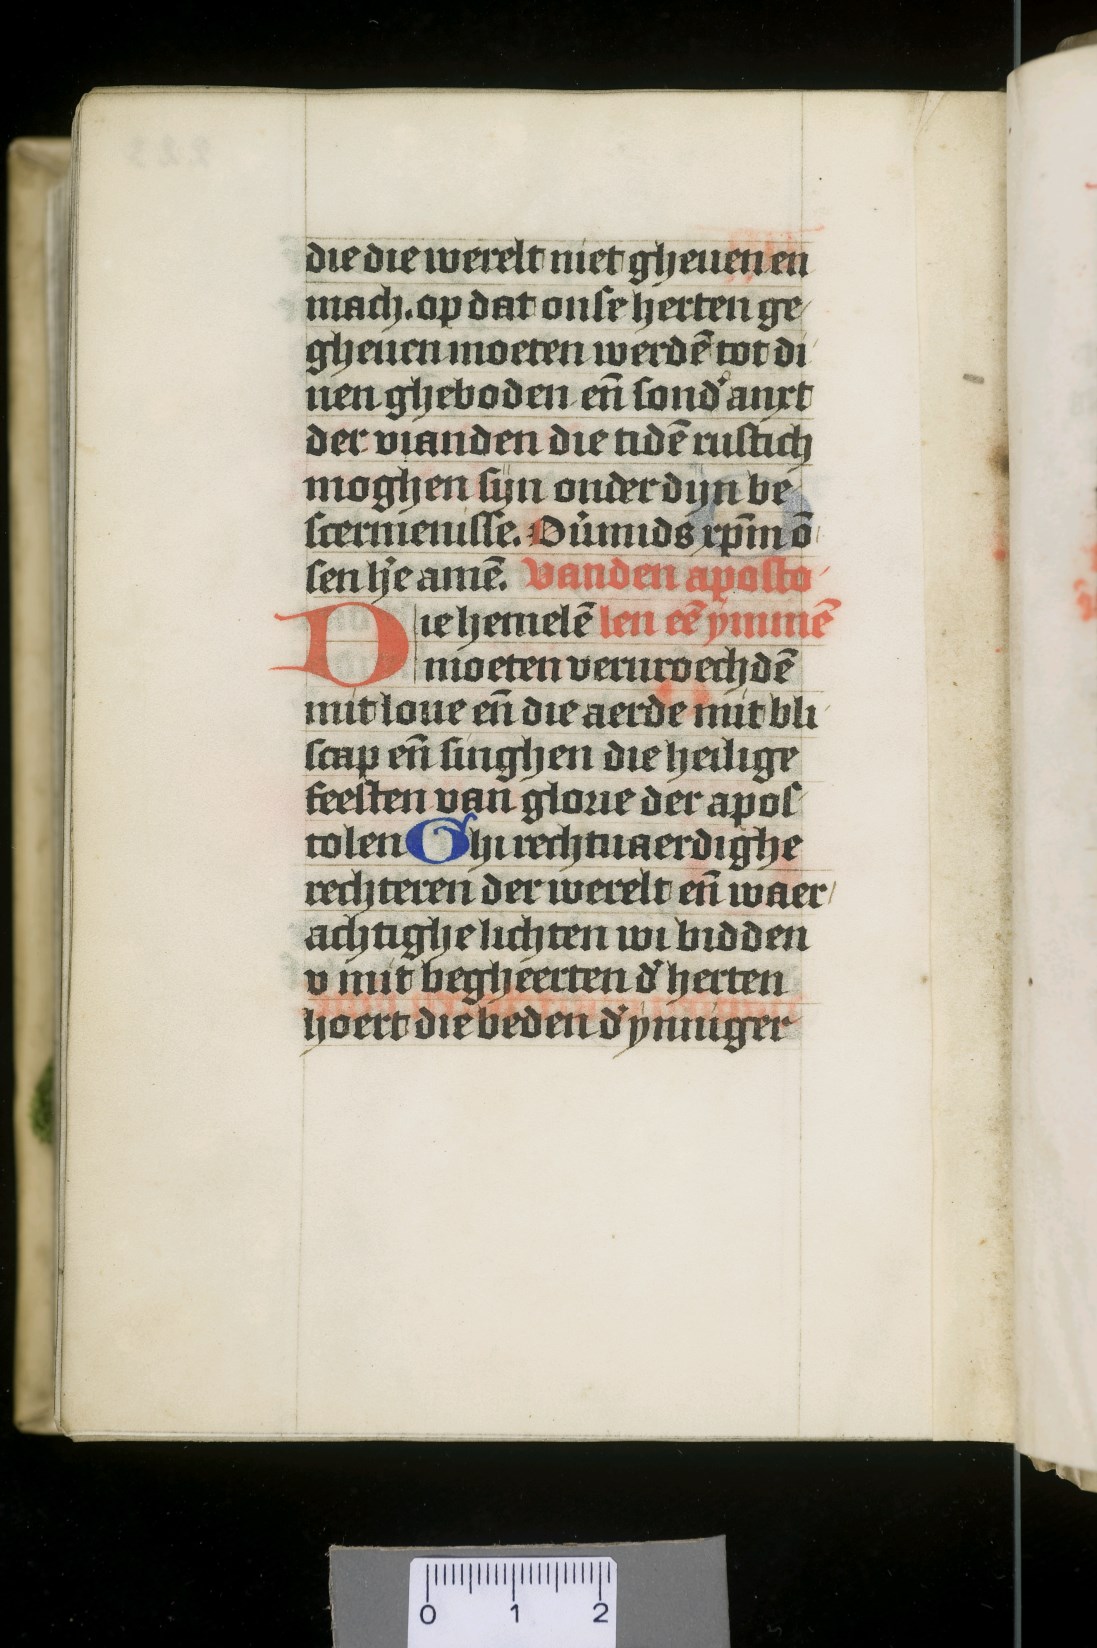 die die werelt niet gheuen en
mach. op dat onse herten ge
gheuen moeten werdē tot di
nen gheboden en̄ sond' anxt
der vianden die tidē rustich
moghen sijn onder dijn be
scermenisse. Ou̇mids xp̄m ō
sen h'e amē. Vanden aposto
Die hemelē len eē ymmē
moeten vervroechdē
mit loue en̄ die aerde mit bli
scap en̄ singhen die heilige
feesten van glorie der apos
tolen Ghi rechtuaerdighe
rechteren der werelt en̄ waer
achtighe lichten wi bidden
v mit begheerten d' herten
hoert die beden d' ynniger
0 1 2